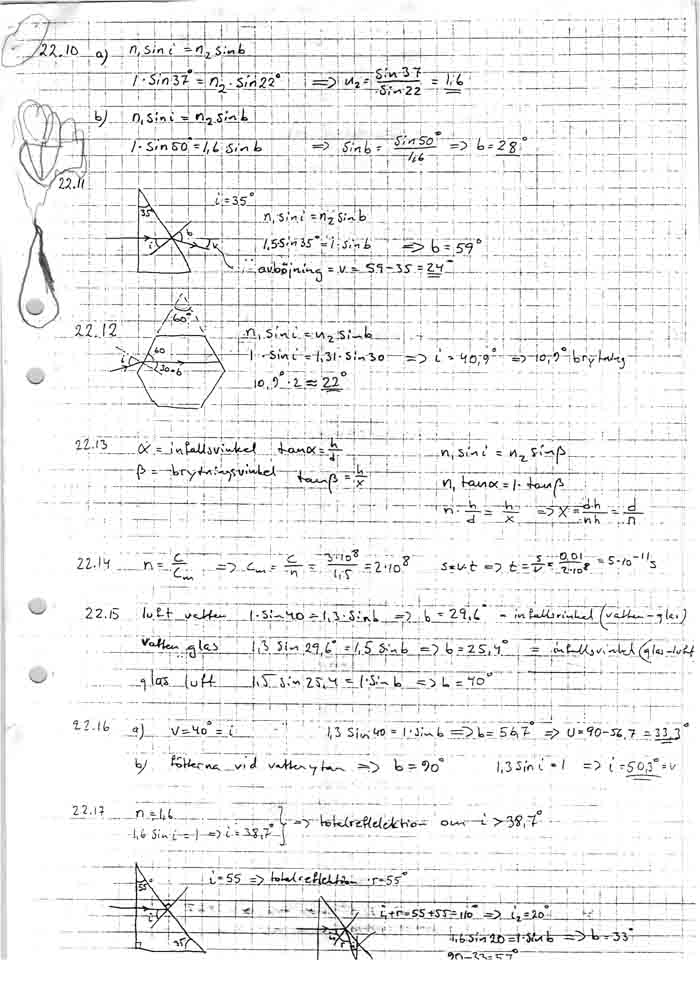 22.10 a) n₁ sin i = n₂ sin b
1·sin 37° = n₂·sin 22° ⇒ n₂ = sin 37 / sin 22 = 1,6
b) n₁ sin i = n₂ sin b
1·sin 50° = 1,6 sin b ⇒ sin b = sin 50° / 1,6 ⇒ b = 28°
22.11
i = 35°
35°
n₁ sin i = n₂ sin b
b
i
v
1,5 sin 35° = 1·sin b ⇒ b = 59°
avböjning = v = 59-35 = 24°
60°
22.12 n₁ sin i = n₂ sin b
60
i
30=b
1·sin i = 1,31·sin 30 ⇒ i = 40,9° ⇒ 10,9° brytning
10,9°·2 ≈ 22°
22.13 α = infallsvinkel tan α = h/d n₁ sin i = n₂ sin β
β = brytningsvinkel tan β = h/x n₁ tan α = 1·tan β
n·h/d = h/x ⇒ x = dh/nh = d/n
22.14 n = c/cₘ ⇒ cₘ = c/n = 3·10⁸/1,5 = 2·10⁸ s=v·t ⇒ t = s/v = 0,01/2·10⁸ = 5·10⁻¹¹ s
22.15 luft vatten 1·sin 40 = 1,3·sin b ⇒ b = 29,6° = infallsvinkel (vatten-glas)
vatten glas 1,3 sin 29,6° = 1,5 sin b ⇒ b = 25,4° = infallsvinkel (glas-luft
glas luft 1,5 sin 25,4 = 1·sin b ⇒ b = 40°
22.16 a) v = 40° = i 1,3 sin 40 = 1·sin b ⇒ b = 56,7° ⇒ U = 90-56,7 = 33,3°
b) fötterna vid vattenytan ⇒ b = 90° 1,3 sin i = 1 ⇒ i = 50,3° = v
22.17 n = 1,6
1,6 sin i = 1 ⇒ i = 38,7° } ⇒ totalreflelektion om i > 38,7°
i = 55 ⇒ totalreflektion r = 55°
55°
i
35°
i₁+r = 55+55 = 110° ⇒ i₂ = 20°
1,6 sin 20 = 1·sin b ⇒ b = 33°
90-33 = 57°